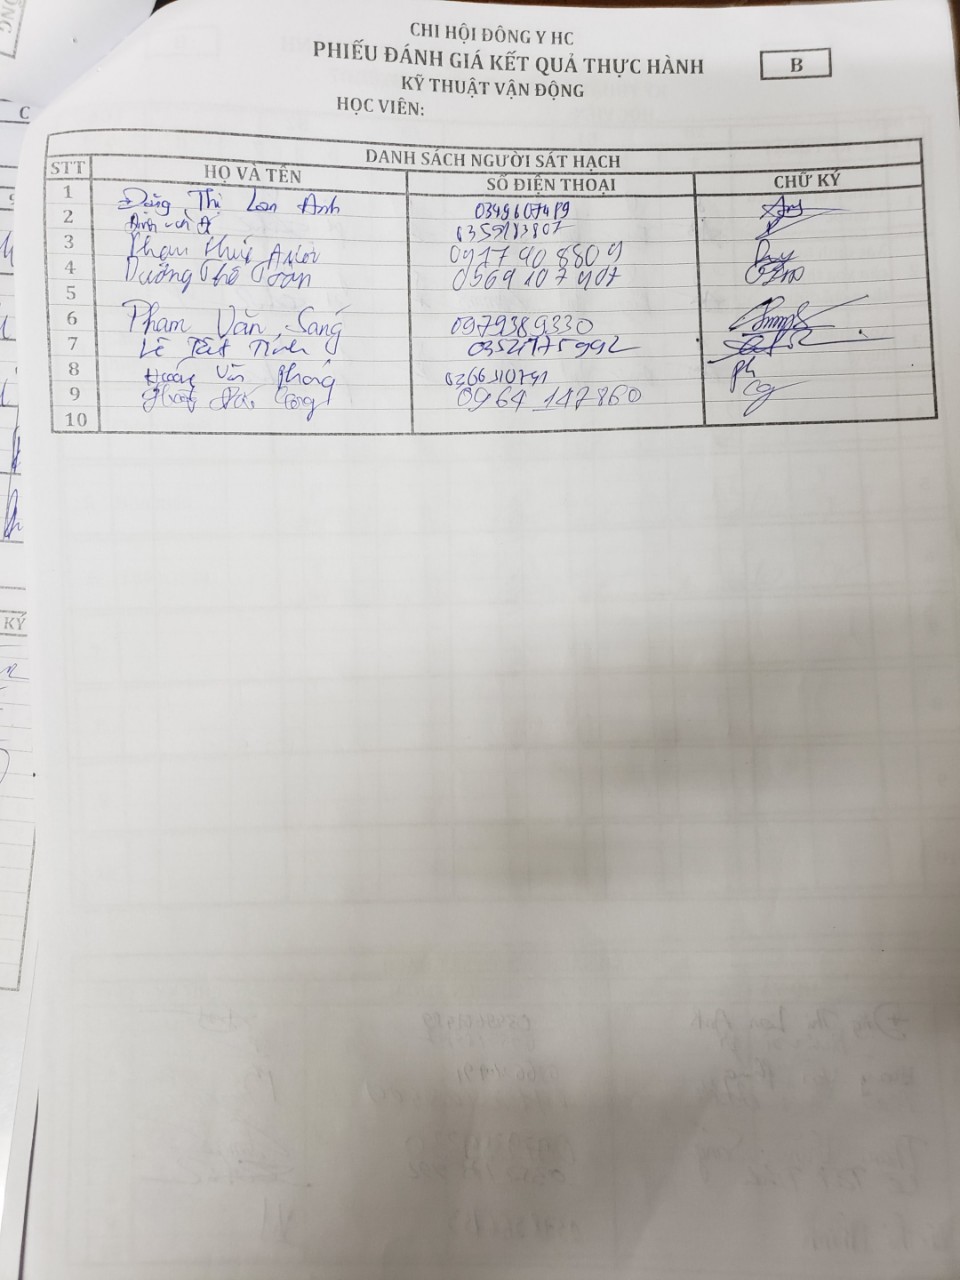 CHI HỘI ĐÔNG Y HC
PHIẾU ĐÁNH GIÁ KẾT QUẢ THỰC HÀNH
B
KỸ THUẬT VẬN ĐỘNG
HỌC VIÊN:
DANH SÁCH NGƯỜI SÁT HẠCH
STT HỌ VÀ TÊN SỐ ĐIỆN THOẠI CHỮ KÝ
1 Đặng Thị Lan Anh 0349607489
2
3 Phạm Thuý 0917908809
4 Dương Thế Toàn 0569107907
5
6 Phạm Văn Sang 0979389330
7 Lê Tất Tính 0352175992
8 Hoàng Văn Phong 0366510791
9 0964 147860
10
C
KÝ